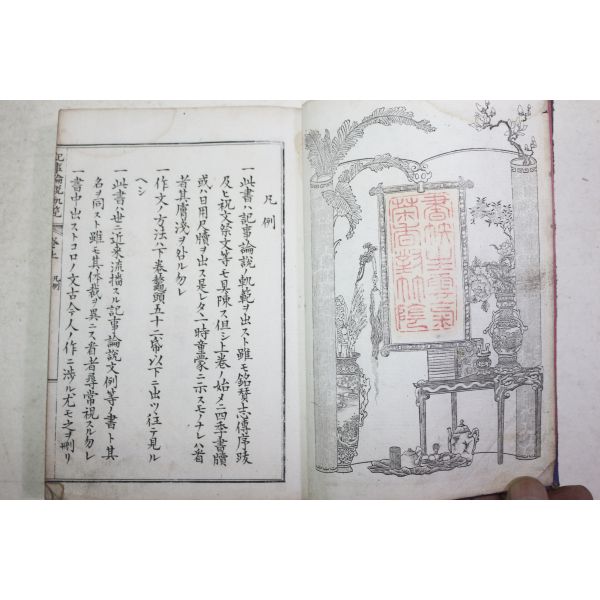 書帙生雲氣
茶香對竹陰
凡例
一此書ハ記事論説ノ軌範ヲ出スト雖モ銘賛志傳序跋
及ヒ祝文祭文等モ具陳ス但シ上巻ノ始メニ四季書牘
或ハ日用尺牘ヲ出ス是レタヽ一時童蒙ニ示スモノナレハ看
者其膚淺ヲ外ル勿レ
一作文ノ方法ハ下巻鼇頭五十二葉以下ニ出ツ往テ見ル
ヘシ
一此書ハ世ニ近来流播スル記事論説文例等ノ書ト其
名ヲ同スト雖モ其体裁ヲ異ニス看者尋常視スル勿レ
一書中出ストコロノ文古今人ノ作ニ渉ル尤モ之ヲ刪リ
記事論説軌範 凡例